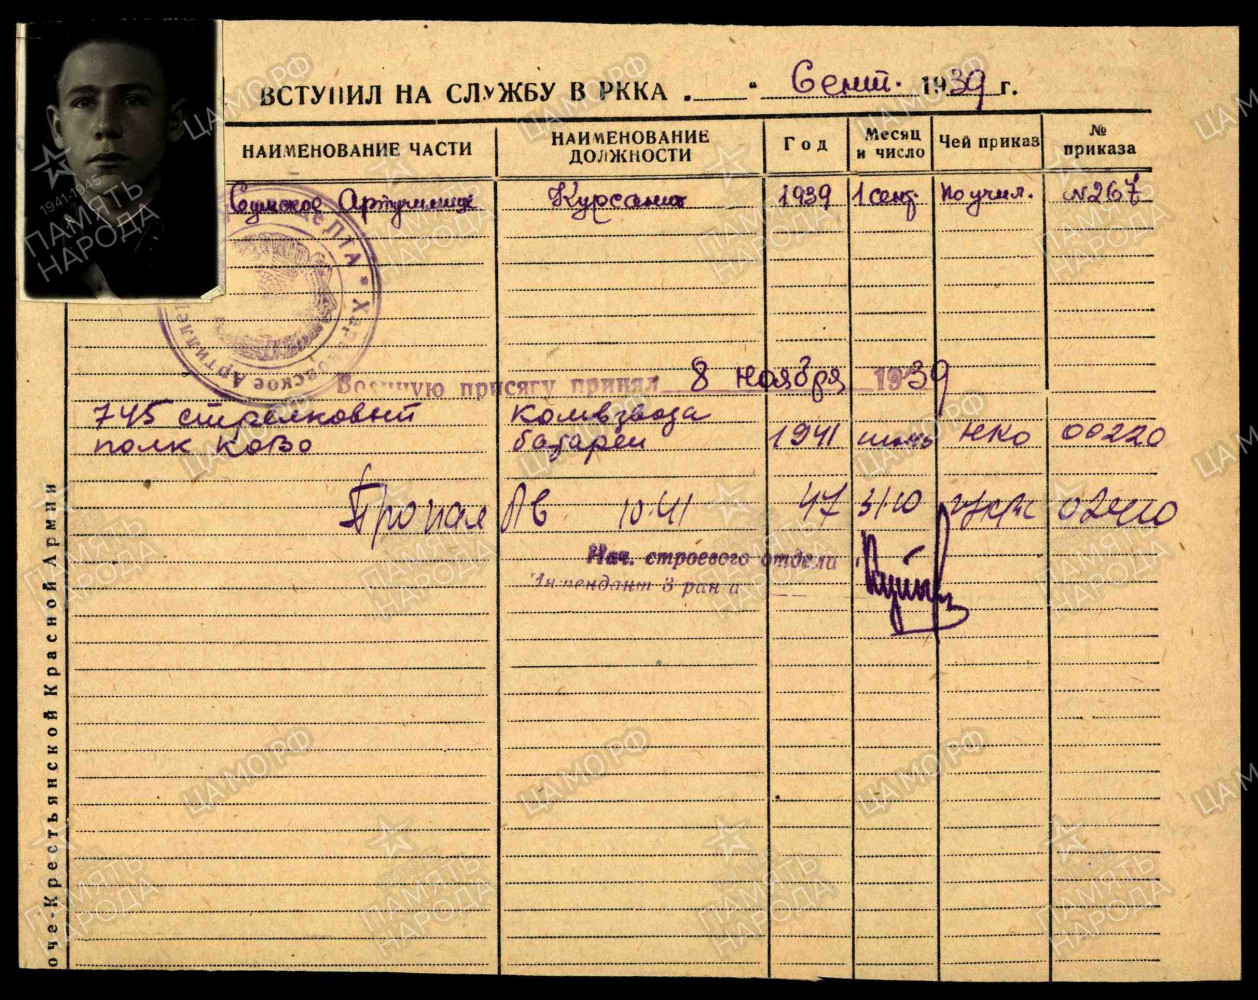 ВСТУПИЛ НА СЛУЖБУ В РККА „___“ Сент. 1939 г.
НАИМЕНОВАНИЕ ЧАСТИ НАИМЕНОВАНИЕ ДОЛЖНОСТИ Год Месяц и число Чей приказ № приказа
Сумское Артучилище Курсант 1939 1 сент. По учил. №267
Военную присягу принял 8 ноября 1939
745 стрелковый комвзвода
полк КОВО батареи 1941 июнь НКО 00220
Пропал 10.41 47 31/10 02410
Нач. строевого отдела
Интендант 3 ранга
оче-Крестьянской Красной Армии
Харьковское Артилле
1941-1945
ПАМЯТЬ
НАРОДА
ЦАМО.РФ